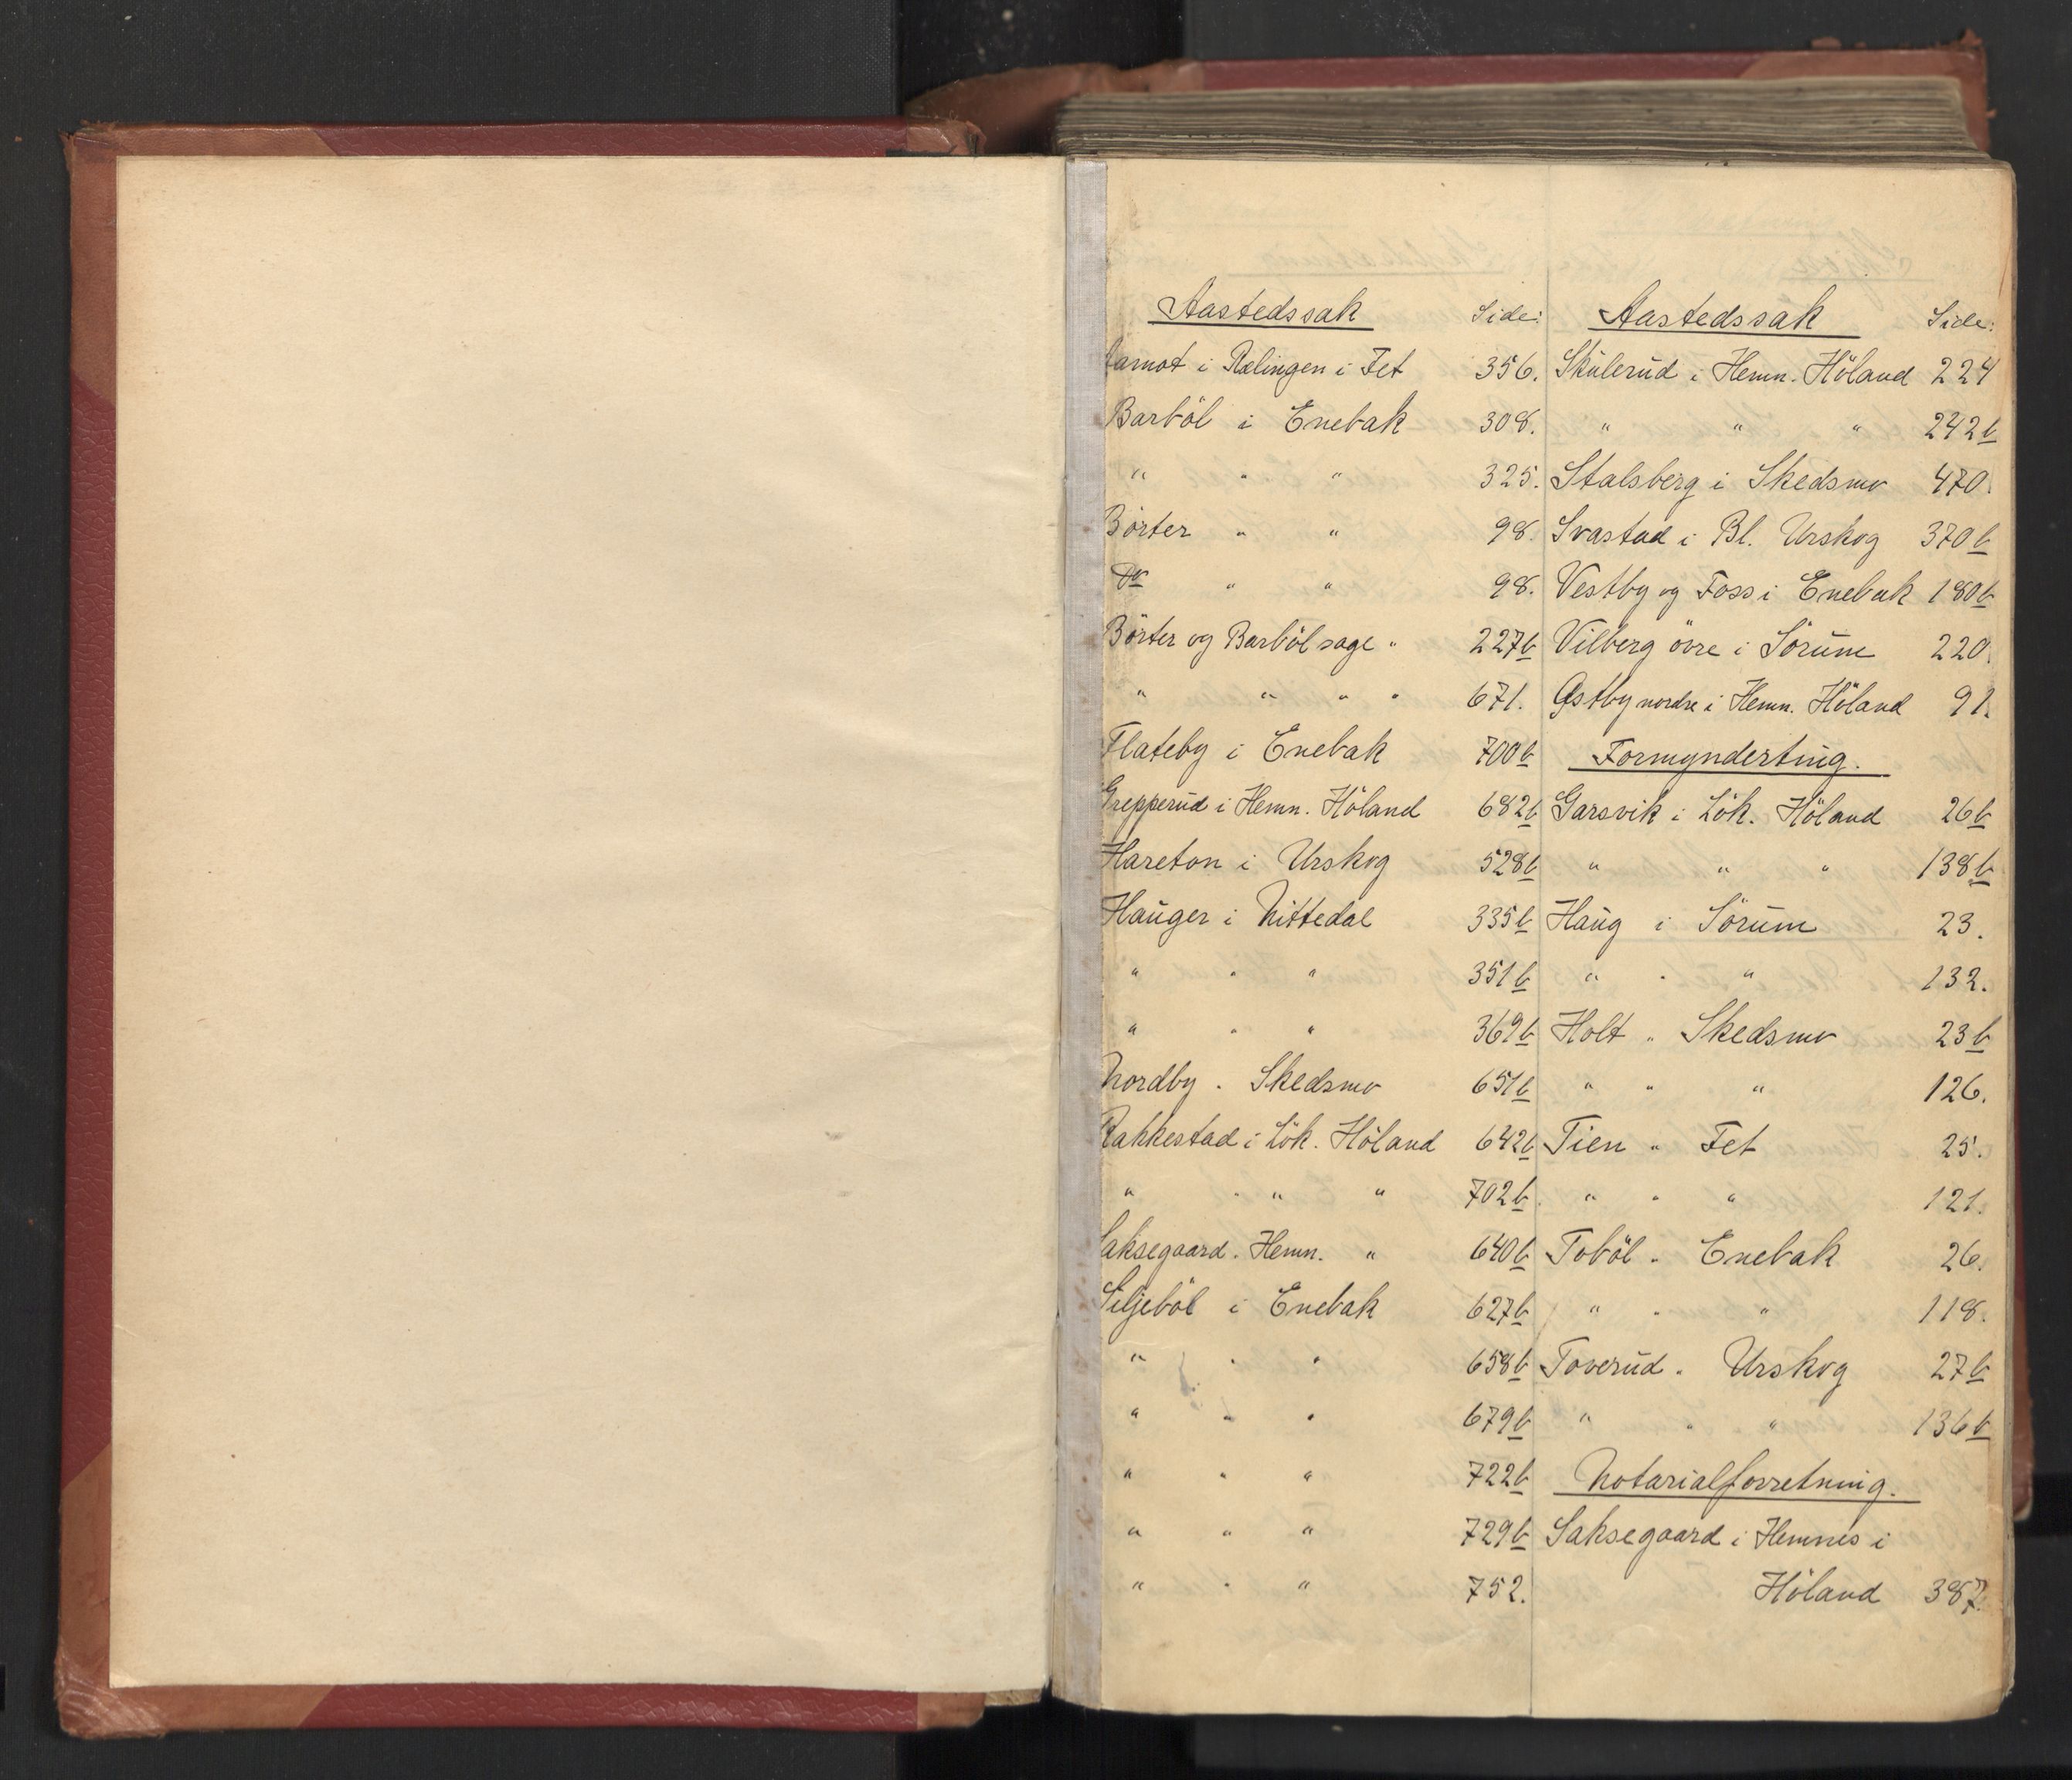 Aastedssak Side:
Aamot i Rælingen i Fet 356.
Barböl i Enebak 308.
" " " 325.
Börter " " 98.
Do " " 98.
Börter og Barböl sage " 227b
" " " " 671.
Flateby i Enebak 700b
Grepperud i Hemn. Höland 682b
Hareton i Urskog 528b
Hauger i Nittedal 335b
" " " 351b
" " " 369b
Nordby " Skedsmo 651b
Rakkestad i Lök. Höland 642b
" " " " 702b
Saksegaard " Hemn. " 640b
Siljeböl i Enebak 627b
" " " 658b
" " " 679b
" " " 722b
" " " 729b
" " " 752.
Aastedssak Side:
Skulerud i Hemn. Höland 224
" " " 242b
Stalsberg i Skedsmo 470.
Svastad i Bl. Urskog 370b
Vestby og Foss i Enebak 180b
Vilberg övre i Sörum 220.
Østby nordre i Hemn. Höland 91.
Formynderting.
Garsvik i Lök. Höland 26b
" " " 138b
Haug i Sörum 23.
" " " 132.
Holt " Skedsmo 23b
" " " 126.
Tien " Fet 25.
" " " 121.
Toböl " Enebak 26.
" " " 118.
Toverud " Urskog 27b
" " " 136b
Notarialforretning.
Saksegaard i Hemnes i
Höland 387.